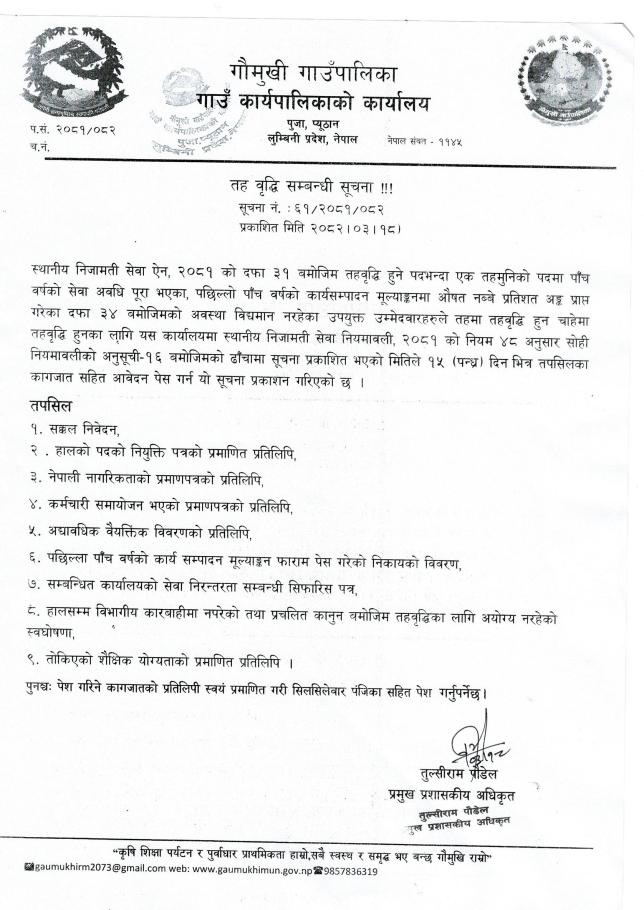 गौमुखी गाउँपालिका
गाउँ कार्यपालिकाको कार्यालय
पुजा, प्यूठान
लुम्बिनी प्रदेश, नेपाल
नेपाल संवत - ११४५
प.सं. २०८१/०८२
च.नं.
तह वृद्धि सम्बन्धी सूचना !!!
सूचना नं. : ६१/२०८१/०८२
प्रकाशित मिति २०८२।०३।१८)
स्थानीय निजामती सेवा ऐन, २०८१ को दफा ३१ बमोजिम तहवृद्धि हुने पदभन्दा एक तहमुनिको पदमा पाँच
वर्षको सेवा अवधि पूरा भएका, पछिल्लो पाँच वर्षको कार्यसम्पादन मूल्याङ्कनमा औषत नब्बे प्रतिशत अङ्क प्राप्त
गरेका दफा ३४ बमोजिमको अवस्था विद्यमान नरहेका उपयुक्त उम्मेदवारहरुले तहमा तहवृद्धि हुन चाहेमा
तहवृद्धि हुनका लागि यस कार्यालयमा स्थानीय निजामती सेवा नियमावली, २०८१ को नियम ४८ अनुसार सोही
नियमावलीको अनुसूची-१६ बमोजिमको ढाँचामा सूचना प्रकाशित भएको मितिले १५ (पन्ध्र) दिन भित्र तपसिलका
कागजात सहित आवेदन पेस गर्न यो सूचना प्रकाशन गरिएको छ ।
तपसिल
१. सक्कल निवेदन,
२ . हालको पदको नियुक्ति पत्रको प्रमाणित प्रतिलिपि,
३. नेपाली नागरिकताको प्रमाणपत्रको प्रतिलिपि,
४. कर्मचारी समायोजन भएको प्रमाणपत्रको प्रतिलिपि,
५. अद्यावधिक वैयक्तिक विवरणको प्रतिलिपि,
६. पछिल्ला पाँच वर्षको कार्य सम्पादन मूल्याङ्कन फाराम पेस गरेको निकायको विवरण,
७. सम्बन्धित कार्यालयको सेवा निरन्तरता सम्बन्धी सिफारिस पत्र,
८. हालसम्म विभागीय कारबाहीमा नपरेको तथा प्रचलित कानुन बमोजिम तहवृद्धिका लागि अयोग्य नरहेको
स्वघोषणा,
९. तोकिएको शैक्षिक योग्यताको प्रमाणित प्रतिलिपि ।
पुनश्चः पेश गरिने कागजातको प्रतिलिपी स्वयं प्रमाणित गरी सिलसिलेवार पंजिका सहित पेश गर्नुपर्नेछ।
तुल्सीराम पौडेल
प्रमुख प्रशासकीय अधिकृत
तुल्सीराम पौडेल
प्रशासकीय अधिकृत
"कृषि शिक्षा पर्यटन र पुर्वाधार प्राथमिकता हाम्रो,सबै स्वस्थ र समृद्ध भए बन्छ गौमुखि राम्रो"
gaumukhirm2073@gmail.com web: www.gaumukhimun.gov.np☎9857836319